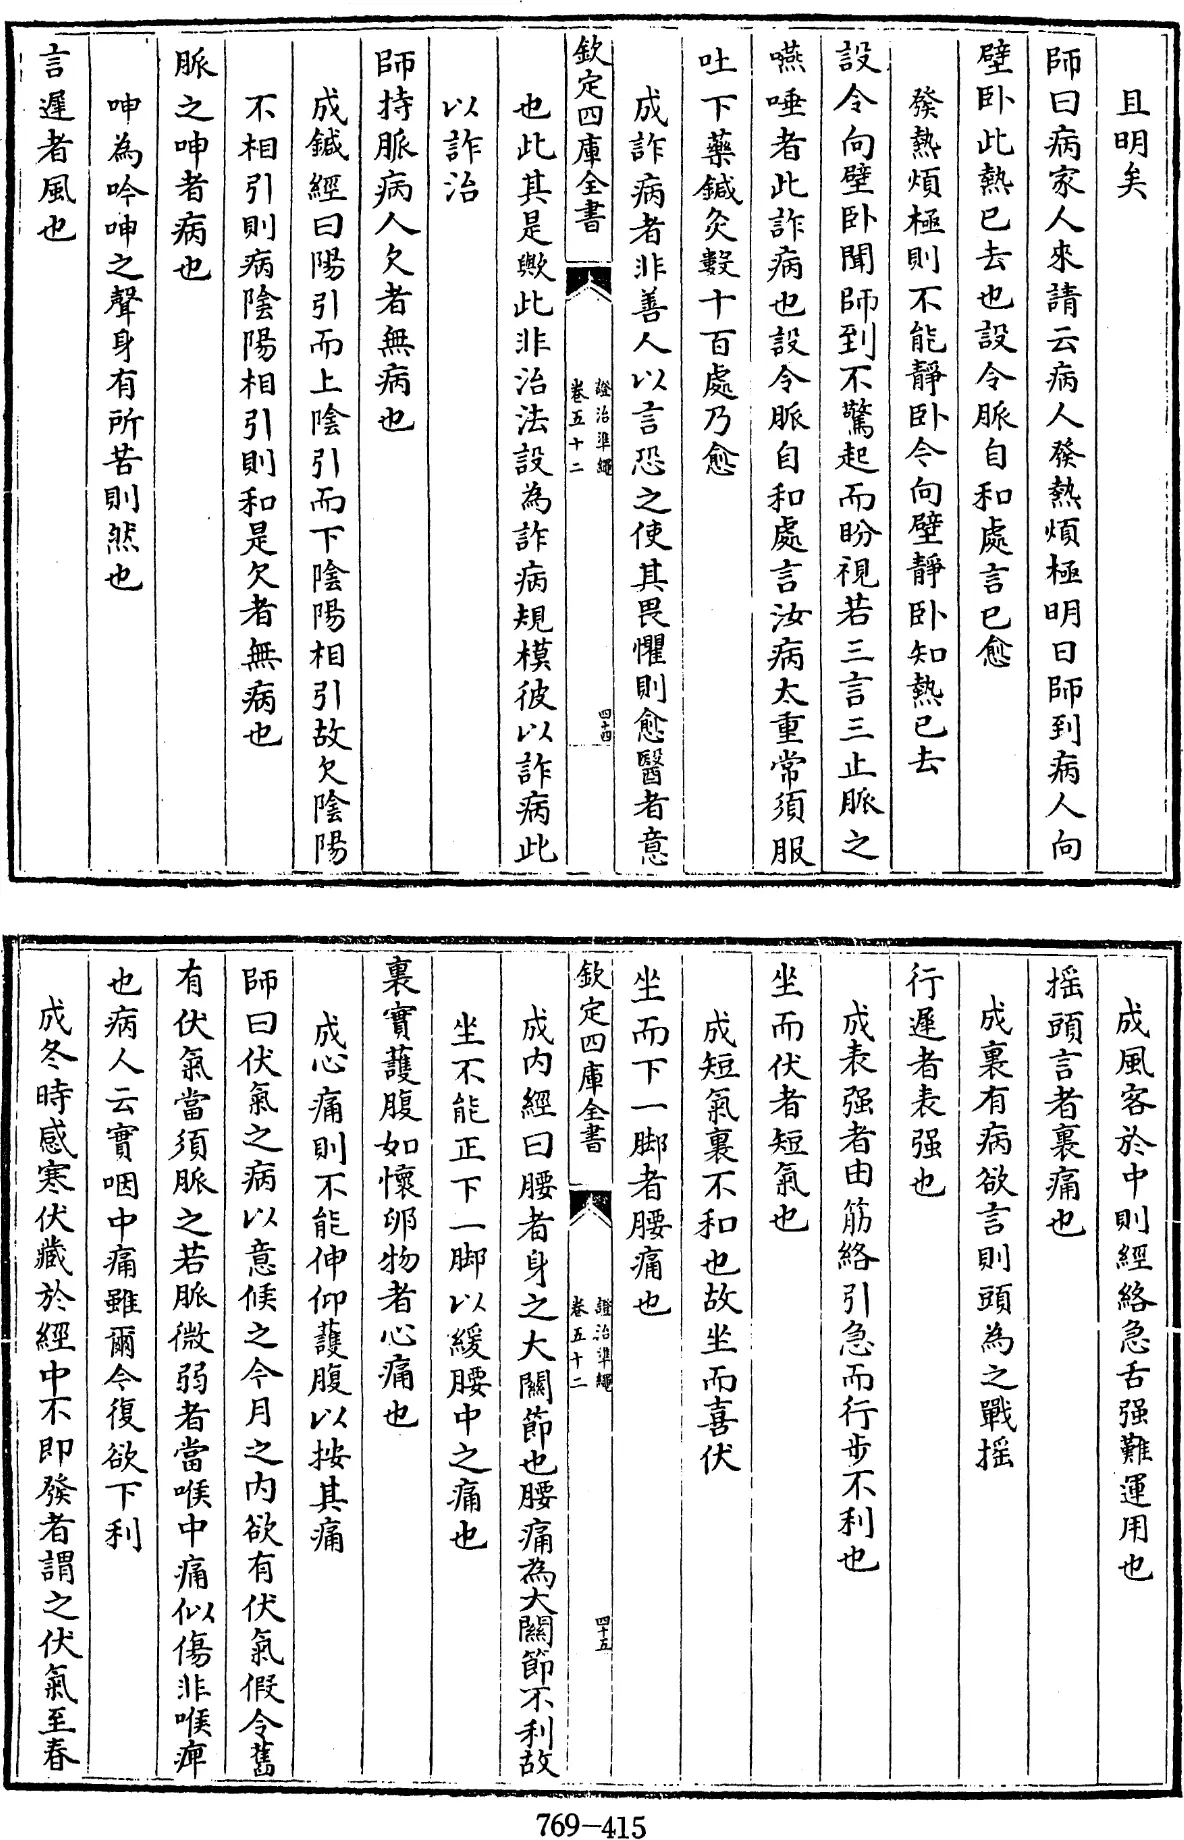 且明矣
師曰病家人來請云病人發熱煩極明日師到病人向
壁卧此熱已去也設令脈自和處言已愈
發熱煩極則不能靜卧今向壁靜卧知熱已去
設令向壁卧聞師到不驚起而盼視若三言三止脈之
嚥唾者此詐病也設令脈自和處言汝病太重當須服
吐下藥鍼灸數十百處乃愈
成詐病者非善人以言恐之使其畏懼則愈醫者意
欽定四庫全書
證治準繩
卷五十二
四十四
也此其是歟此非治法設為詐病規模彼以詐病此
以詐治
師持脈病人欠者無病也
成鍼經曰陽引而上陰引而下陰陽相引故欠陰陽
不相引則病陰陽相引則和是欠者無病也
脈之呻者病也
呻為吟呻之聲身有所苦則然也
言遲者風也
成風客於中則經絡急舌强難運用也
揺頭言者裏痛也
成裏有病欲言則頭為之戰揺
行遲者表强也
成表强者由筋絡引急而行步不利也
坐而伏者短氣也
成短氣裏不和也故坐而喜伏
坐而下一脚者腰痛也
欽定四庫全書
證治準繩
卷五十二
四十五
成内經曰腰者身之大關節也腰痛為大關節不利故
坐不能正下一脚以緩腰中之痛也
裏實護腹如懷卵物者心痛也
成心痛則不能伸仰護腹以按其痛
師曰伏氣之病以意候之今月之内欲有伏氣假令舊
有伏氣當須脈之若脈微弱者當喉中痛似傷非喉痺
也病人云實咽中痛雖爾今復欲下利
成冬時感寒伏藏於經中不即發者謂之伏氣至春
769-415